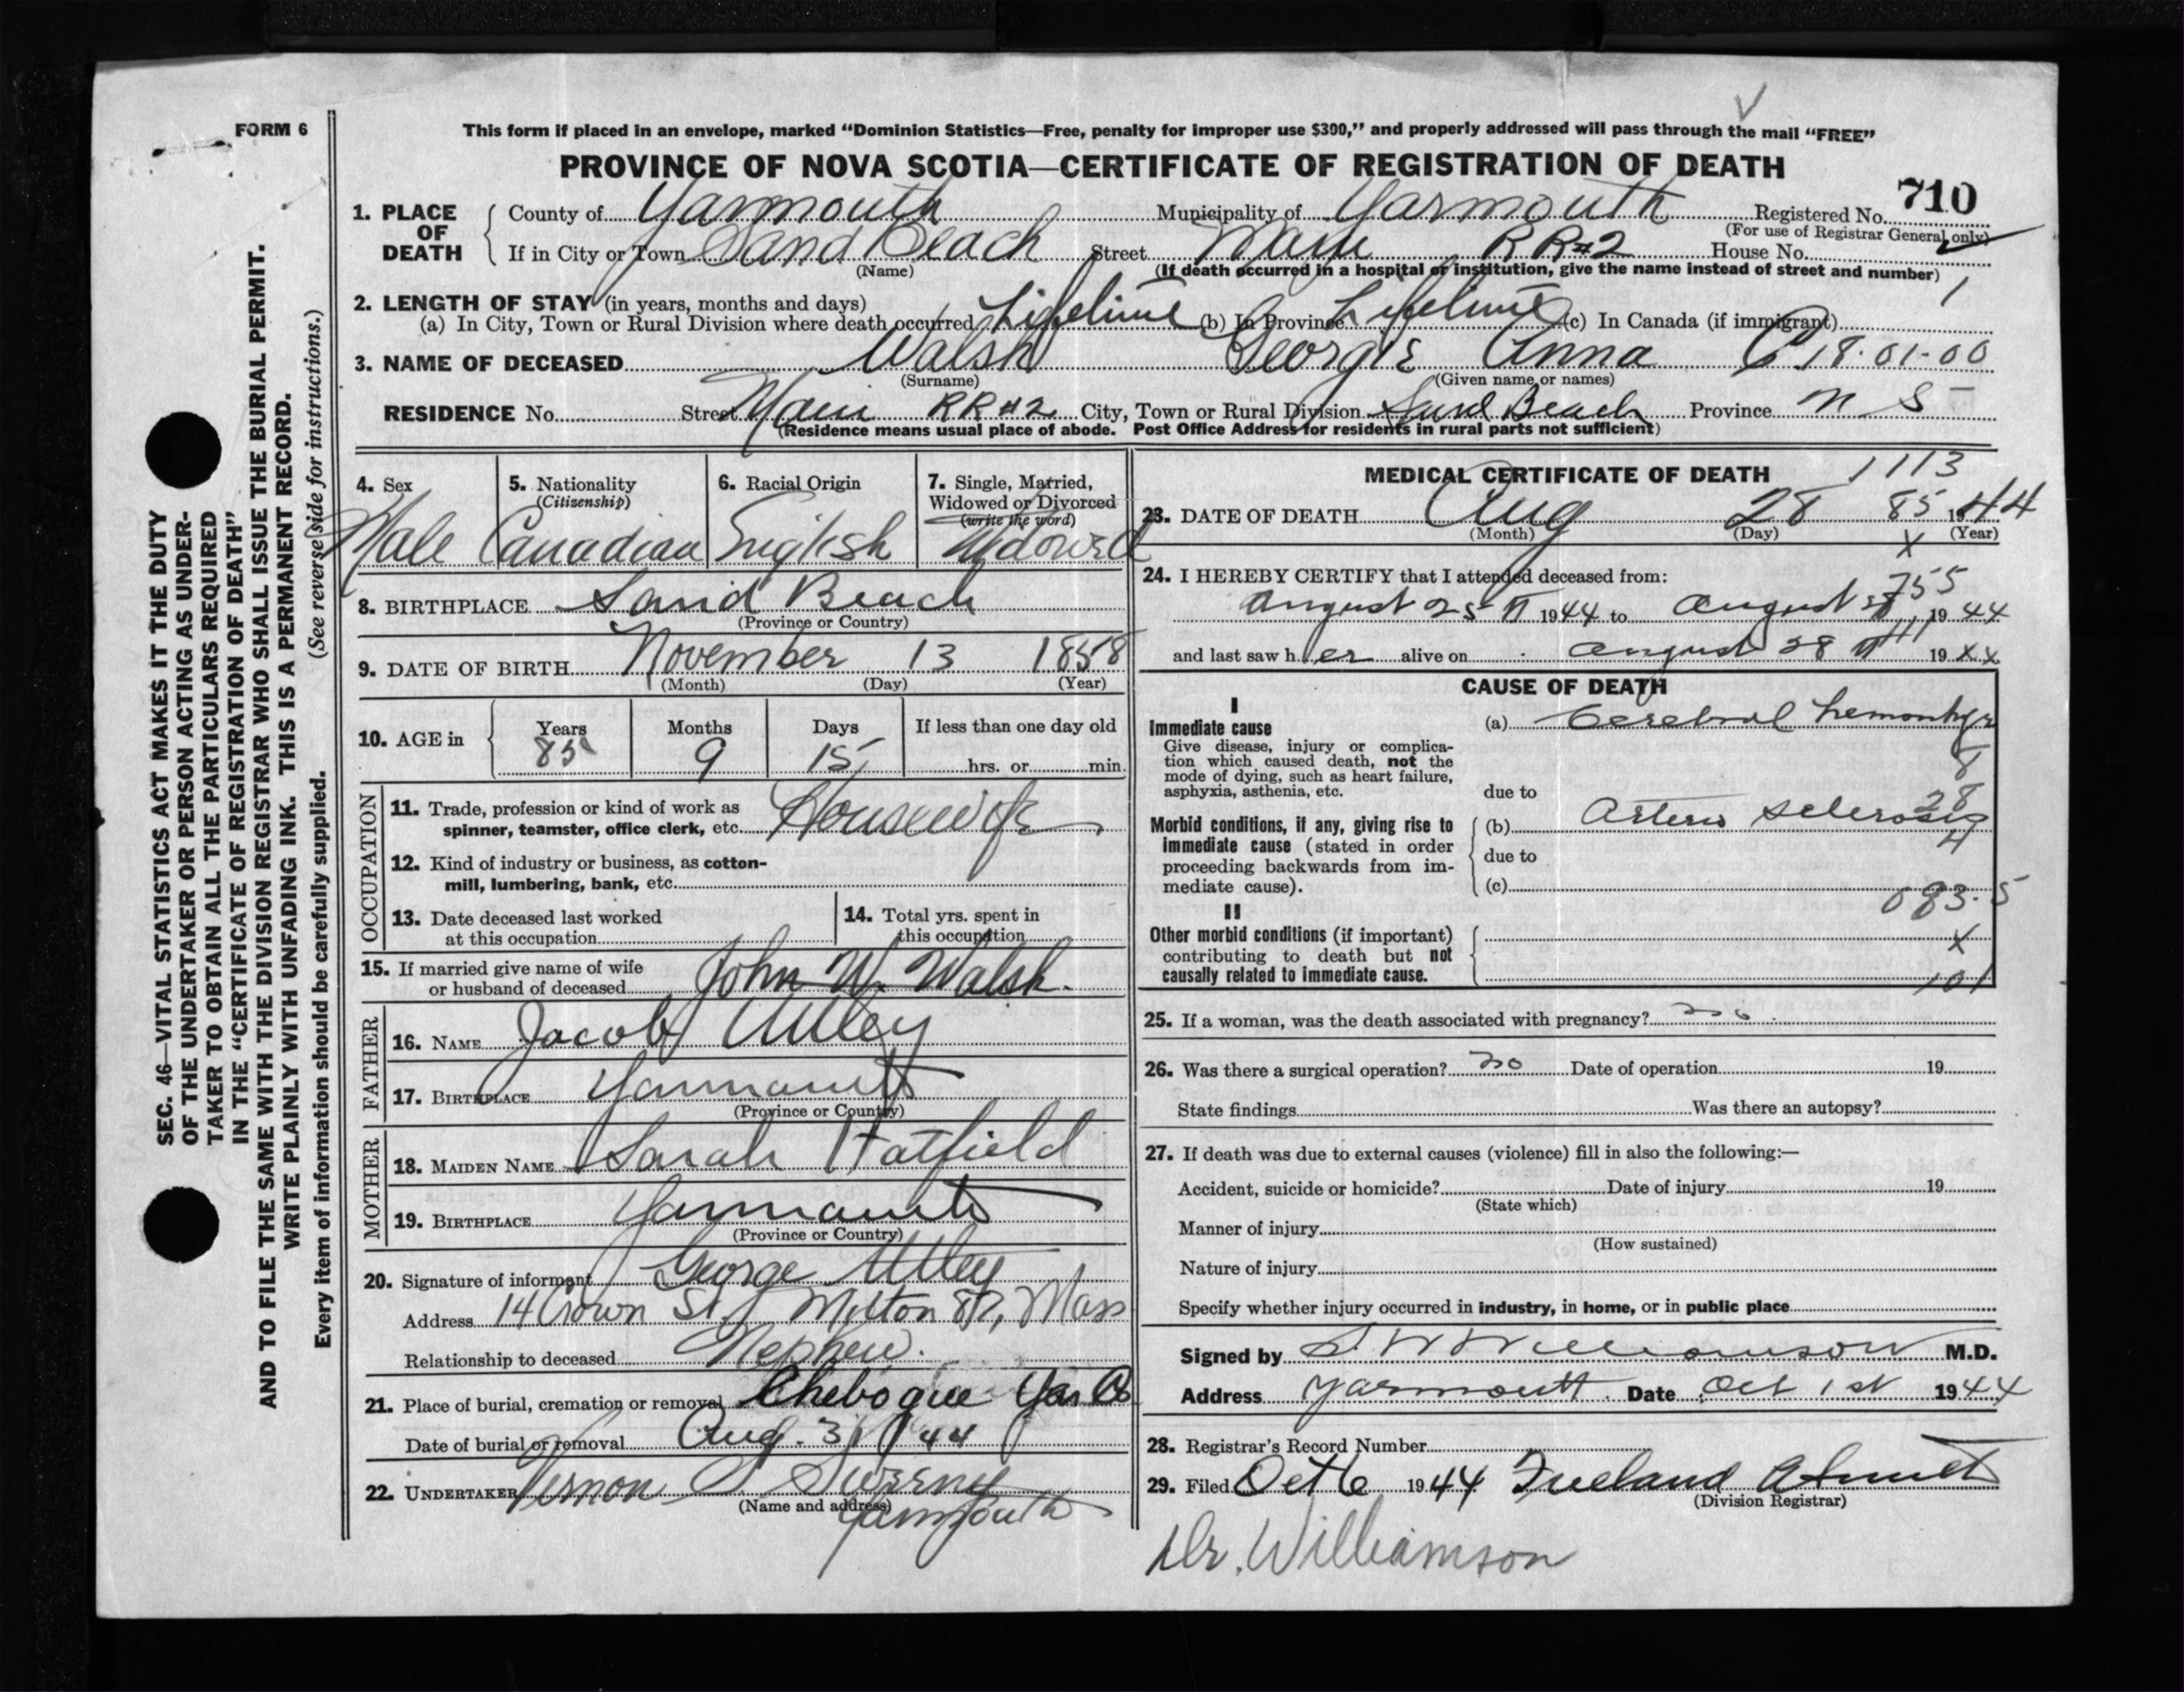 FORM 6
This form if placed in an envelope, marked “Dominion Statistics—Free, penalty for improper use $300,” and properly addressed will pass through the mail “FREE”
PROVINCE OF NOVA SCOTIA—CERTIFICATE OF REGISTRATION OF DEATH
710
1. PLACE OF DEATH
County of Yarmouth Municipality of Yarmouth Registered No.
(For use of Registrar General only)
If in City or Town Sand Beach Street Main RR#2 House No.
(Name) (If death occurred in a hospital or institution, give the name instead of street and number)
2. LENGTH OF STAY (in years, months and days) 1
(a) In City, Town or Rural Division where death occurred Lifetime (b) In Province Lifetime (c) In Canada (if immigrant)
3. NAME OF DECEASED Walsh Georgie Anna 18·01-00
(Surname) (Given name or names)
RESIDENCE No. Street Main RR#2 City, Town or Rural Division Sand Beach Province N S
(Residence means usual place of abode. Post Office Address for residents in rural parts not sufficient)
SEC. 46—VITAL STATISTICS ACT MAKES IT THE DUTY
OF THE UNDERTAKER OR PERSON ACTING AS UNDER-
TAKER TO OBTAIN ALL THE PARTICULARS REQUIRED
IN THE “CERTIFICATE OF REGISTRATION OF DEATH”
AND TO FILE THE SAME WITH THE DIVISION REGISTRAR WHO SHALL ISSUE THE BURIAL PERMIT.
WRITE PLAINLY WITH UNFADING INK. THIS IS A PERMANENT RECORD.
Every item of information should be carefully supplied. (See reverse side for instructions.)
4. Sex 5. Nationality 6. Racial Origin 7. Single, Married,
(Citizenship) Widowed or Divorced
(write the word)
Male Canadian English Widowed
8. BIRTHPLACE Sand Beach
(Province or Country)
9. DATE OF BIRTH November 13 1858
(Month) (Day) (Year)
10. AGE in Years Months Days If less than one day old
85 9 15 hrs. or min.
OCCUPATION
11. Trade, profession or kind of work as
spinner, teamster, office clerk, etc. Housewife
12. Kind of industry or business, as cotton-
mill, lumbering, bank, etc.
13. Date deceased last worked
at this occupation
14. Total yrs. spent in
this occupation
15. If married give name of wife
or husband of deceased John W. Walsh.
FATHER
16. NAME Jacob Utley
17. BIRTHPLACE Yarmouth
(Province or Country)
MOTHER
18. MAIDEN NAME Sarah Hatfield
19. BIRTHPLACE Yarmouth
(Province or Country)
20. Signature of informant George Utley
Address 14 Crown St. Milton 87, Mass
Relationship to deceased Nephew.
21. Place of burial, cremation or removal Chebogue Yar Co
Date of burial or removal Aug. 31 / 44
22. UNDERTAKER Vernon S Sweeny
(Name and address)
Yarmouth
MEDICAL CERTIFICATE OF DEATH 1113
23. DATE OF DEATH Aug 28 85 1944
(Month) (Day) (Year)
x
24. I HEREBY CERTIFY that I attended deceased from: 755
August 25 1944 to August 28 1944
and last saw her alive on August 28 19 xx
CAUSE OF DEATH
I
Immediate cause
Give disease, injury or complica-
tion which caused death, not the
mode of dying, such as heart failure,
asphyxia, asthenia, etc.
(a) Cerebral
8
due to
28
Morbid conditions, if any, giving rise to
immediate cause (stated in order
proceeding backwards from im-
mediate cause).
(b) Arterio
4
due to
(c)
083·5
II
Other morbid conditions (if important)
contributing to death but not
causally related to immediate cause.
X
101
25. If a woman, was the death associated with pregnancy? no
26. Was there a surgical operation? no Date of operation 19
State findings Was there an autopsy?
27. If death was due to external causes (violence) fill in also the following:—
Accident, suicide or homicide? Date of injury 19
(State which)
Manner of injury
(How sustained)
Nature of injury
Specify whether injury occurred in industry, in home, or in public place
Signed by S W Williamson M.D.
Address Yarmouth. Date Oct 1st 1944
28. Registrar's Record Number
29. Filed Oct 6 1944
(Division Registrar)
Dr. Williamson